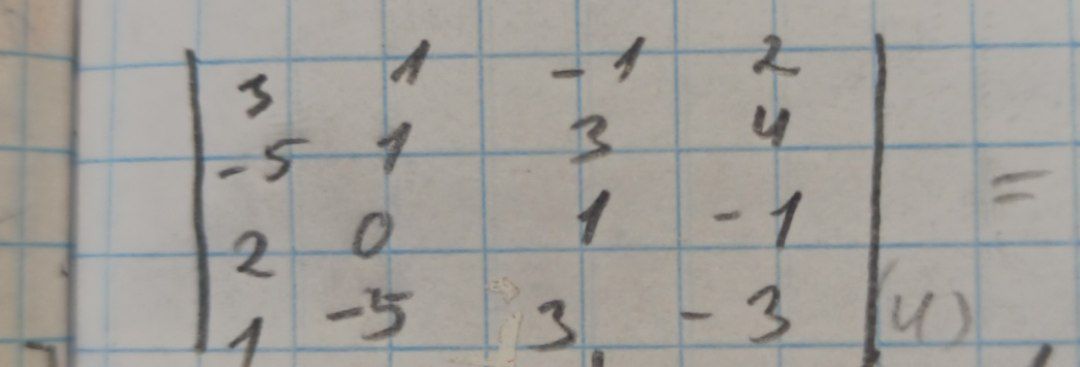 | 3 1 -1 2 |
| -5 1 3 4 | =
| 2 0 1 -1 |
| 1 -5 3 -3 | (4)